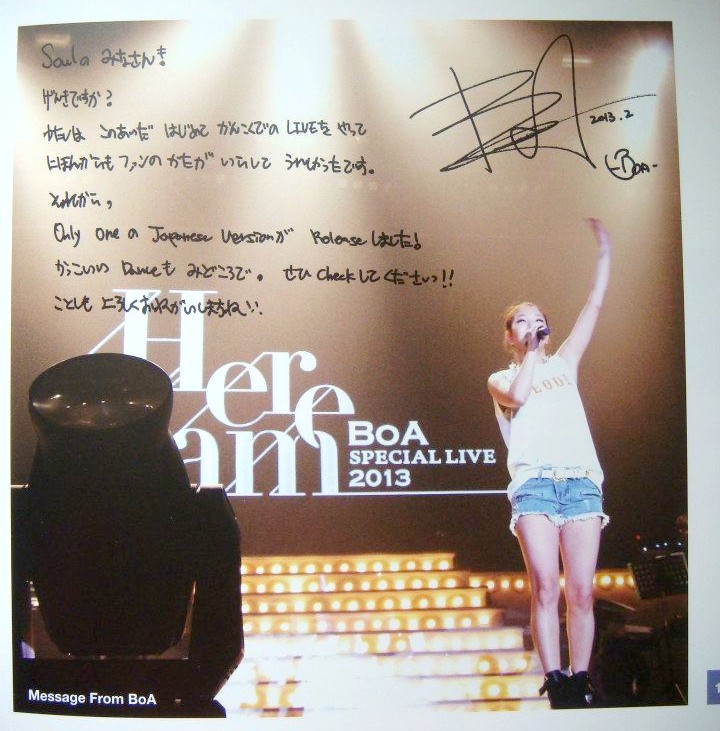 Soulの みなさんも!
げんきですか?
わたしは このあいだ はじめて かんこくでの LIVEを やって
にほんからも ファンの かたが いらして うれしかったです。
それから,
Only oneの Japanese Versionが Releaseしました!
かっこいい Danceも みどころで。 ぜひ Checkしてくださいっ!!
ことしも よろしくおねがいしますね
2013.2
-BoA-
Here
am
BoA
SPECIAL LIVE
2013
Message From BoA